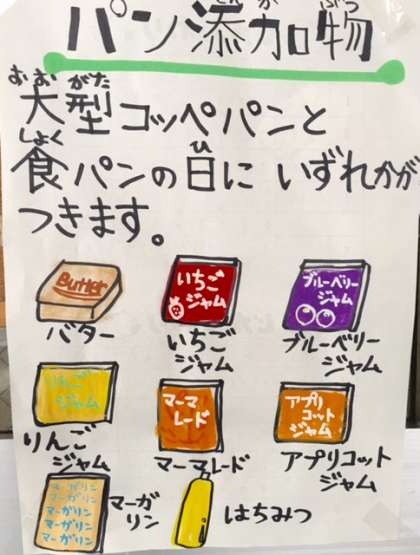 パン添加物
てんかぶつ
大型コッペパンと
おおがた
食パンの日に いずれかが
しょく ひ
つきます。
Butter
バター
いちご
ジャム
いちご
ジャム
ブルーベリー
ジャム
ブルーベリー
ジャム
りんご
ジャム
りんご
ジャム
マーマ
レード
マーマレード
アプリ
コット
ジャム
アプリコット
ジャム
マーガリン
マーガリン
マーガリン
マーガリン
マーガリン
マーガ
リン
はちみつ